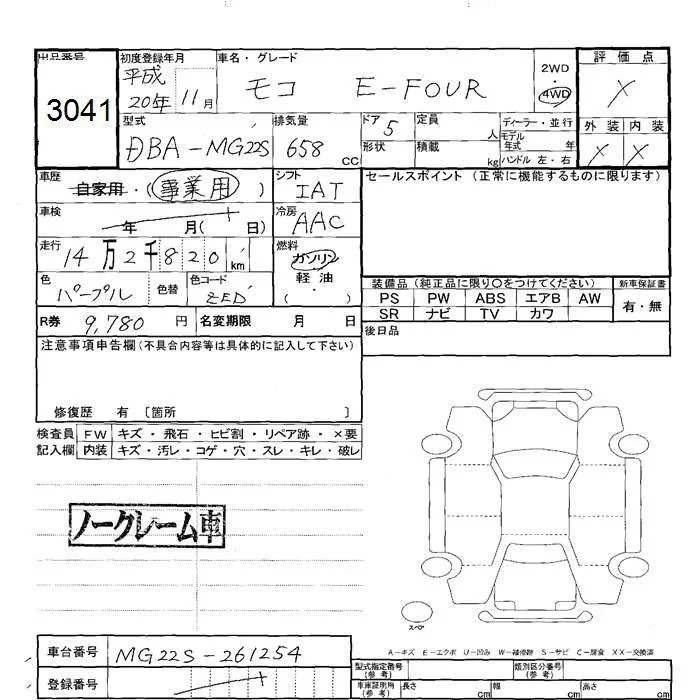 出品番号
3041
初度登録年月
平成
20年 11月
車名・グレード
モコ E-FOUR
2WD
・
4WD
評価点
X
外装 内装
X X
型式
DBA-MG22S
排気量
658 cc
ドア 5
形状
定員 人
積載 kg
ディーラー・並行
モデル
年式 年
ハンドル 左・右
車歴
自家用・(事業用)
シフト
IAT
セールスポイント (正常に機能するものに限ります)
車検
年 月( 日)
冷房
AAC
走行
14万2千820 km
燃料
ガソリン
軽油
( ・ )
色
パープル
色替
色コード
ZED
装備品 (純正品に限り○をつけてください)
新車保証書
PS PW ABS エアB AW
有・無
SR ナビ TV カワ
R券 9,780 円
名変期限 月 日
後日品
注意事項申告欄(不具合内容等は具体的に記入して下さい)
修復歴 有 〔箇所 〕
検査員 FW キズ・飛石・ヒビ割・リペア跡・×要
記入欄 内装 キズ・汚レ・コゲ・穴・スレ・キレ・破レ
ノークレーム車
スペア
A-キズ E-エクボ U-凹み W-補修跡 S-サビ C-腐食 XX-交換済
車台番号 MG22S-261254
登録番号
型式指定番号
(参考)
類別区分番号
(参考)
車庫証明用
(参考)
長さ cm 幅 cm 高さ cm